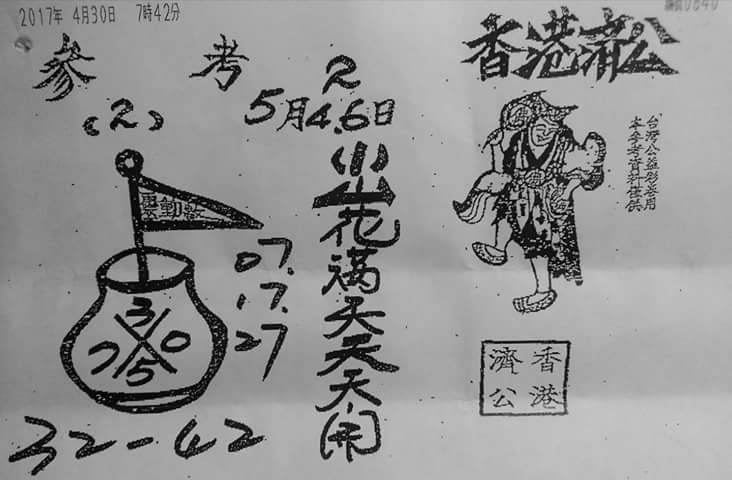 2017年 4月30日 7時42分
參考 2
香港濟公
(2)
5月4.6日
花滿天天天開
本參考資料僅供
台灣公益彩券用
07.
17.
27
3
7 0
5
32-42
香港
濟公